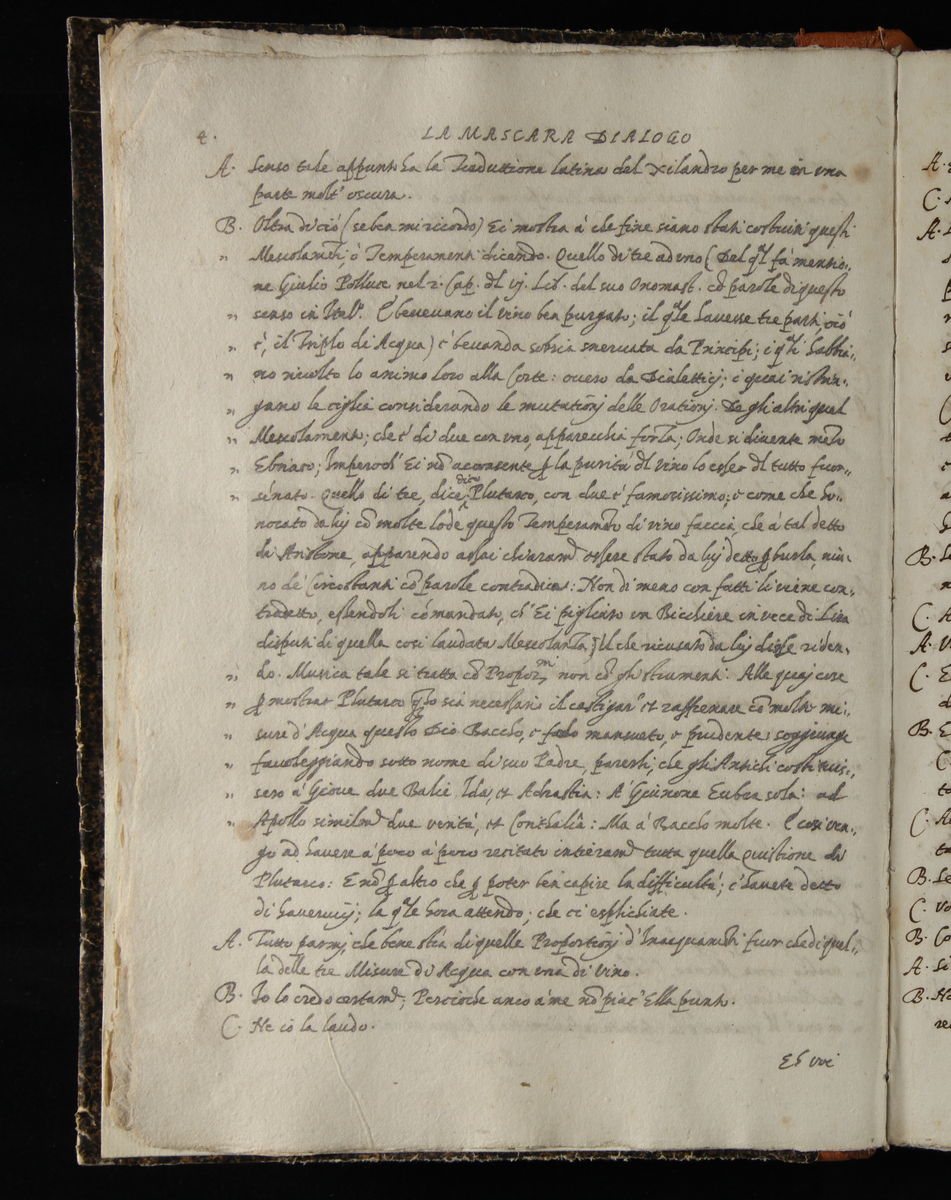 4.
LA MASCARA DIALOGO
A. Senso tale appunto ha la Traduttione latina del Xilandro per me in una
parte molt' oscura.
B. Oltra di ciò (se ben mi ricordo) Ei mostra à che fine siano stati costituiti questi
„ Mescolamēti, ò Temperamenti dicendo. Quello di tre ad uno (Del q̃l fà mentio-
ne Giulio Polluce nel 2. Cap. dl vj. Lib. del suo Onomast. cō parole di questo
„ senso in Ital.º E bevevano il vino ben purgato; il q̃le havesse tre parti, ciò
„ è, il Triplo di Acqua) è bevanda sobria snervata da Principi; i q̃li habbi-
„ no rivolto lo animo loro alla Corte: overo da Dialettici; i quai ristrin-
„ gano le ciglia considerando le mutationj delle Orationj. De gli altri quel
„ Mescolamento; che è di due con uno, apparecchia forza; Onde si divente mezo
„ Ebriaco; Imperoch' Ei nō acconsente p la purità dl vino lo esser dl tutto fuor-
„ sénato. Quello di tre, dice dico Plutarco, con due è famosissimo; e come che ho-
norato da lui cō molte lode questo Temperamēto di vino faccia, che à tal detto
di Aristone, apparendo assai chiaramẽ essere stato da lui detto p burla, niu-
no de' Circostanti cō parole contradica: Non di meno con fatti li viene con-
tradetto, essendoli comandato, ch' Ei pigliasse un Bicchiere in vece di Lira
di quella cosi laudata Mescolanza; Il che ricusato da lui disse riden-
„ do. Musica tale si tratta cō Propor.ni non cō gli strumenti. Alle quai cose
„ p mostrar Plutarco q̃to sia necessario il castigar' et raffrenare cō molte mi-
„ sure d' Acqua questo Dio Baccho, e farlo mansueto, e prudente; soggiunge
„ favoleggiando sotto nome di suo Padre, parerli, che gli Antichi costituis-
„ sero à Giove due Balie Ida, et Adrastia: A' Giunone Eubea sola: ad
„ Apollo similmẽ due verità, et Corithalia: Ma à Baccho molte. E cosi ven-
go ad havere à poco à poco recitato intieramẽ tutta quella Quistione di
Plutarco: E nō p altro che p poter ben capire la difficultà; c' havete detto
di havervij; la q̃le hora attendo; che ci esplichiate.
A. Tutto parmi, che bene stia di quelle Proportionj d' Inacquamēti fuor che di quel-
la delle tre Misure di Acqua con una di vino.
B. Io lo credo certamẽ; Percioche anco à me nō piac' Ella punto.
C. Ne iò la laudo.
Et uvi